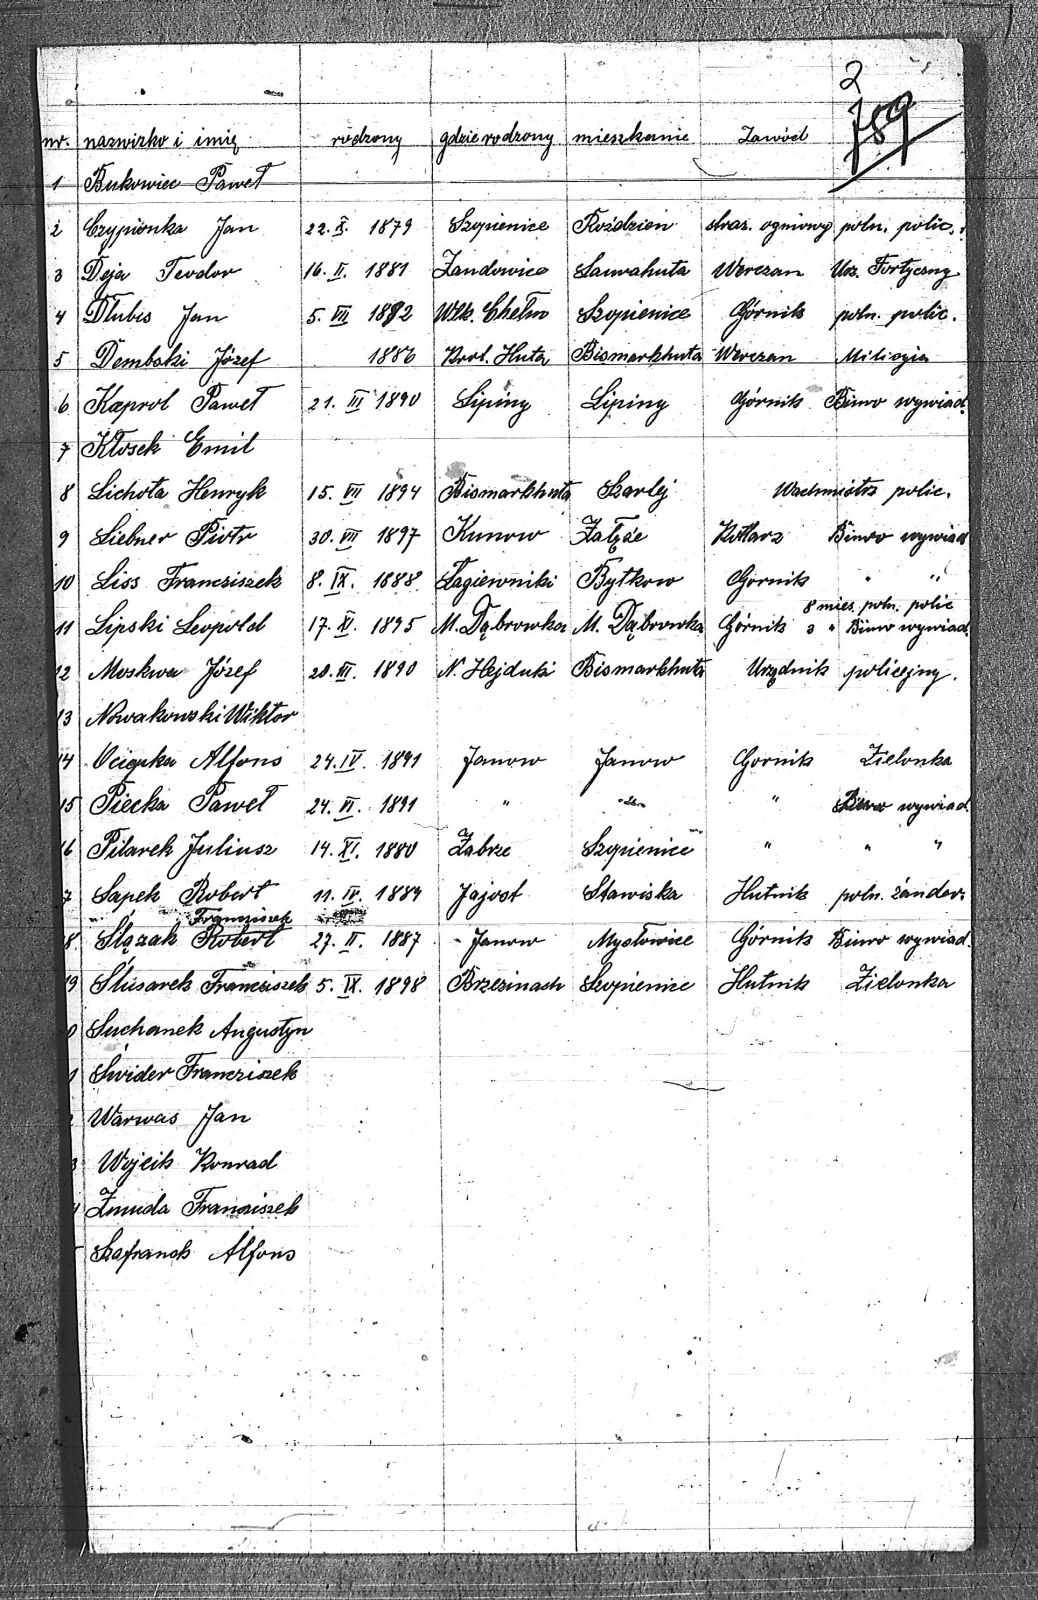 2
789
nr. nazwizko i imię rodzony gdzie rodzony mieszkanie Zawód
1 Bukowiec Paweł
2 Czypionka Jan 22. X. 1879 Szopienice Roździen straż. ogniowy poln. polic.
3 Deja Teodor 16. II. 1881 Zandowice Laurahuta Werczan Urz. Fortyczny
4 Dłubis Jan 5. VII 1882 Wlk. Chełm Szopienice Górnik poln. polic.
5 Dembski Józef 1886 Krol. Huta Bismarkhuta Werczan Miliczia
6 Kaprol Paweł 21. III 1890 Lipiny Lipiny Górnik Biuro wywiad.
7 Kłosek Emil
8 Lichota Henryk 15. VII 1894 Bismarkhuta Szarlej Wachmistrz polic.
9 Liebner Piotr 30. VII 1897 Kunow Załęże Kotlarz Biuro wywiad
10 Liss Franciszek 8. IX. 1888 Łagiewniki Bytkow Gornik " "
8 mies. poln. polic
11 Lipski Leopold 17. XI. 1895 M. Dąbrowka M. Dąbrowka Górnik 3 " Biuro wywiad.
12 Moskwa Józef 20. III. 1890 N. Hejduki Bismarkhuta Urzędnik policejny.
13 Nowakowski Wiktor
14 Ociepka Alfons 24. IV. 1891 Janow Janow Gornik Zielonka
15 Piecka Paweł 24. VI. 1891 " " " Biuro wywiad.
16 Pilarek Juliusz 14. XI. 1880 Zabrze Szopienice " " "
7 Sapek Robert 11. IV. 1889 Jajost Stawiska Hutnik poln. żander.
Franciszek
8 Ślązak Robert 27. II. 1887 Janow Mysłowice Górnik Biuro wywiad.
19 Ślusarek Franciszek 5. IX. 1898 Brzezinach Szopienice Hutnik Zielonka
0 Suchanek Augustyn
1 Świder Franciszek
2 Warwas Jan
3 Wojcik Konrad
4 Żmuda Franciszek
Szafranek Alfons